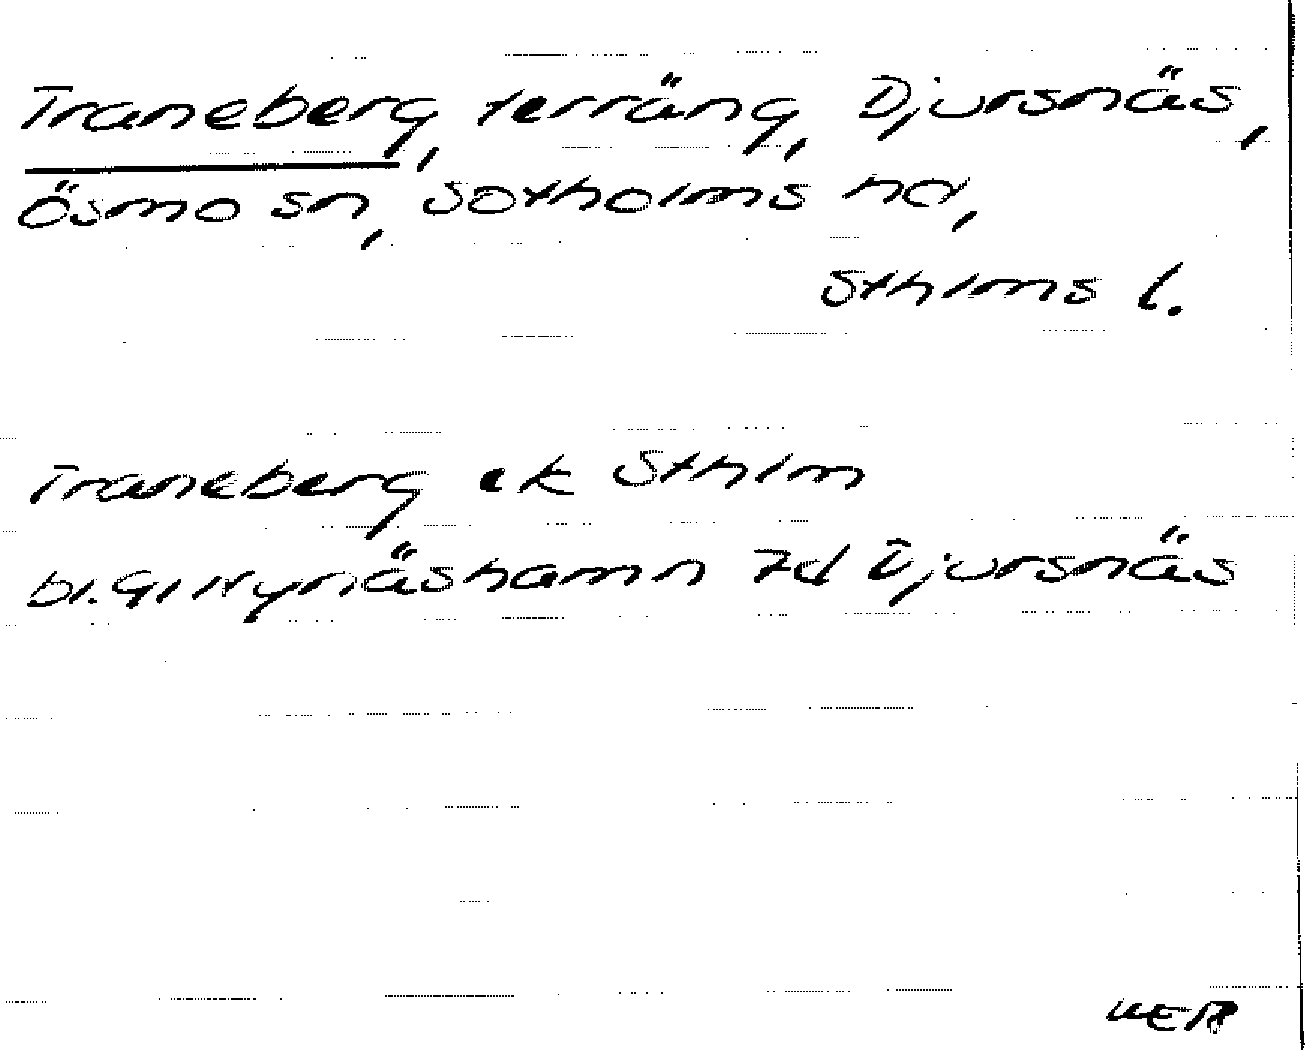 Traneberg, terräng, Djursnäs,
Ösmo sn, Sotholms hd,
Sthlms l.
Traneberg ek Sthlm
bl. 91 Nynäshamn 7d Djursnäs